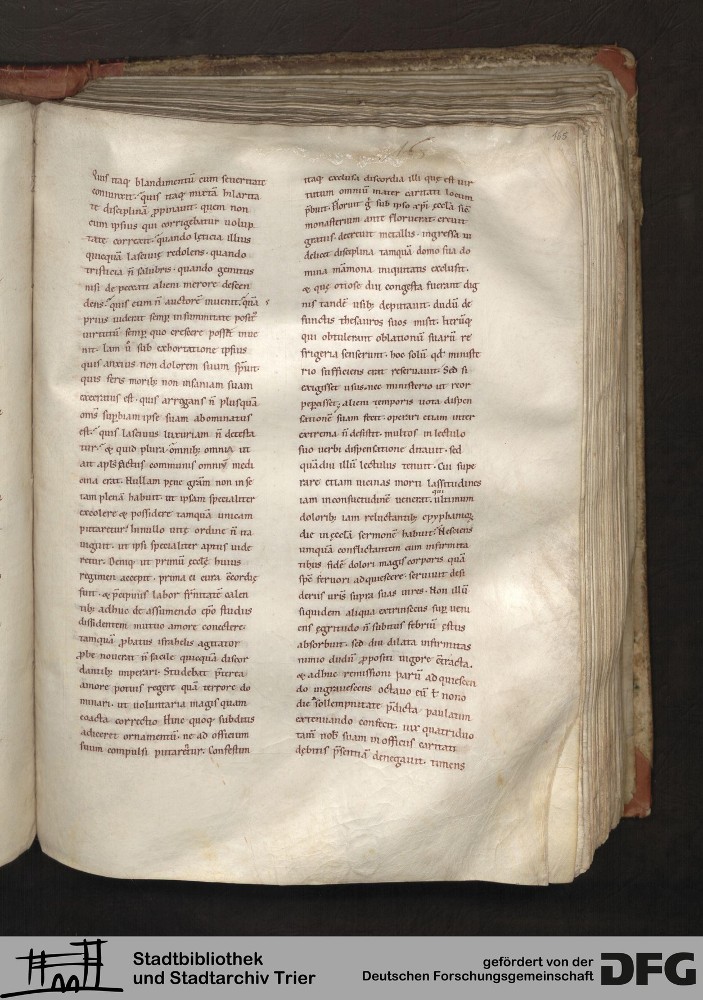 165
Quis itaq; blandimentū cum seueritate
coniunxit. quis itaq; mixta hilarita
te disciplinā ꝓpinauit. quem non
cum ipsius qui corrigebatur uolup
tate correxit. quando lęticia illius
quicquā lasciuię redolens. quando
tristicia n̄ salubris. quando gemitus
nisi de peccati alieni merore descen
dens. quis eum n̄ auctorē inuenit. quā
prius uiderat semꝑ in summitate positū
uirtutū semꝑ quo crescere posset inue
nit. Iam n̄ sub exhortatione ipsius
quis anxius non dolorem suum spreuit.
quis feris morib; non insaniam suam
execratus est. quis arrogans n̄ plusquā
om̄s suꝑbiam ipse suam abominatus
est. quis lasciuus luxuriam n̄ detesta
tur. & quid plura. omnib; omnia ut
ait apl̄s factus communis omniū medi
cina erat. Nullam pęne grām non in se
tam plenā habuit. ut ipsam specialiter
excolere & possidere tamquā unicam
putaretur. In nullo uitę ordine n̄ ita
uiguit. ut ipsi specialiter aptus uide
retur. Deniq; ut primū ęcclę huius
regimen accepit. prima ei cura cōcordię
fuit. & p̄cipuus labor fr̄nitatē calen
tib; adhuc de assumendo ep̄o studiis
dissidentem mutuo amore conectere.
tamquā ꝓbatus israhelis agitator
ꝓbe nouerat n̄ facile quicquā discor
dantib; imperari. Studebat p̄terea
amore potius regere quā terrore do
minari. ut uoluntaria magis quam
coacta correctio. Hinc quoq; subditis
adiceret ornamentū. ne ad officium
suum compulsi putarentur. Confestim
itaq; exclusa discordia illi quę est uir
tutum omniū mater caritati locum
p̄buit. Floruit g̊ sub ipso xp̄i ęccl̄a sic
monasterium ante floruerat. creuit
gratiis. decreuit metallis. ingressa ui
delicet disciplina tamquā domo sua do
mina mamona iniquitatis exclusit.
& quę ociose diu congesta fuerant dig
nis tandē usib; deputauit. dudū de
functis thesauros suos misit. hiique
qui obtulerant oblationū suarū re
frigeria senserunt. hoc solū qd̄ ministe
rio sufficiens erat reseruauit. Sed si
exigisset usus. nec ministerio ut reor
peꝑcisset. alieni temporis uota dispen
sationē suam fecit. operari etiam inter
extrema n̄ desistit. multos in lectulo
suo uerbi dispensatione ditauit. sed
quādiu illū lectulus tenuit. Cui supe
rare etiam uicinas morti lassitudines
iam in consuetudinē uenerat. qui ultimum
dolorib; iam reluctantib; epyphanioꝝ
die in ęccl̄a sermonē habuit. Nesciens
umquā conflictantem cum infirmita
tibus fidē dolori magis corporis quā
sp̄c feruori adquiescere. seruiuit desi
deriis uiris supra suas uires. Non illū
siquidem aliqua extrinsecus suꝑueni
ens ęgritudo n̄ subitus febriū ęstus
absorbuit. sed diu dilata infirmitas
nimio dudū ꝓpositi uigore cōtracta.
& adhuc remissioni parū adquiescen
do ingrauescens octauo eū ł nono
die sollempnitate p̄dicta paulatim
extenuando confecit. uix quatriduo
tam̄ nob̄ suam in officiis caritatis
debitis p̄sentiā denegauit. timens
Stadtbibliothek
und Stadtarchiv Trier
gefördert von der
Deutschen Forschungsgemeinschaft
DFG